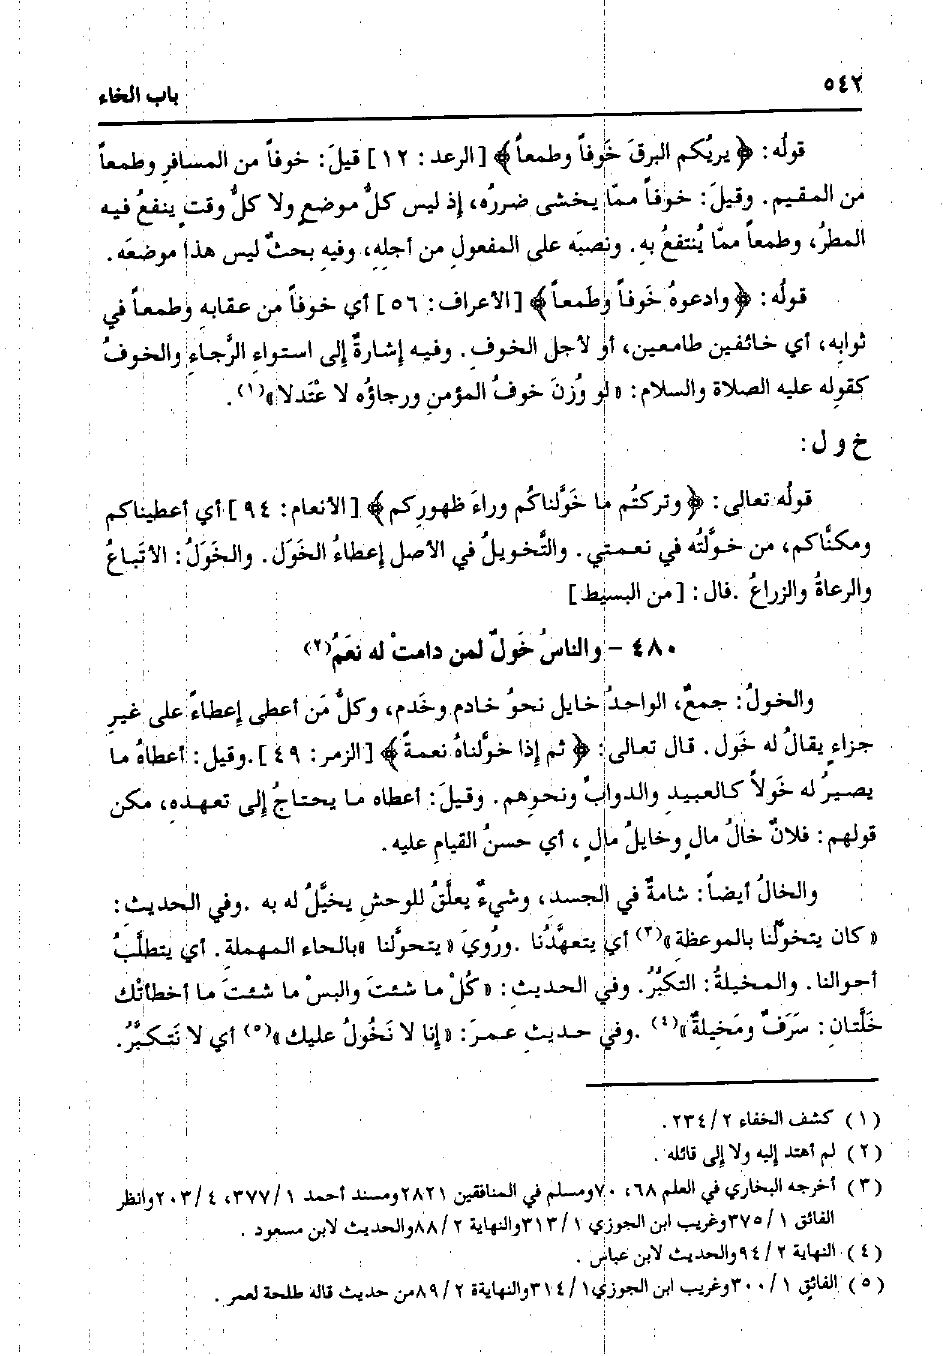 ٥٤٢
باب الخاء
قولُه: ﴿ يريُكم البرقَ خَوفاً وطمعاً ﴾ [الرعد: ١٢] قيلَ: خوفاً من المسافرِ وطمعاً
من المقيم. وقيلَ: خوفاً ممّا يخشى ضررُه، إذ ليس كلُّ موضعٍ ولا كلُّ وقتٍ ينفعُ فيه
المطرُ، وطمعاً ممّا يُنتفعُ بهِ. ونصبَه على المفعولِ من أجلِهِ، وفيهِ بحثٌ ليس هذا موضعَه.
قولُه: ﴿ وادعوهُ خَوفاً وطَمعاً ﴾ [الأعراف: ٥٦] أي خوفاً من عقابهِ وطمعاً في
ثوابِه، أي خائفين طامعين، أو لأجلِ الخوفِ. وفيه إشارةٌ إلى استواءِ الرَّجاءِ والخوفُ
كقولِه عليه الصلاة والسلام: « لو وُزنَ خوفُ المؤمنِ ورجاؤُه لا عْتَدلا »(١).
خ و ل:
قولُه تعالى: ﴿ وتركتُم ما خَوَّلناكُم وراءَ ظهورِكم ﴾ [الأنعام: ٩٤] أي أعطيناكم
ومكنَّاكم، من خوَّلتُه في نعمتي. والتَّخويلُ في الأصل إعطاءُ الخَوَل. والخَوَلُ: الأتَباعُ
والرعاةُ والزراعُ .قال: [من البسيط]
٤٨٠ - والناسُ خَولٌ لمن دامتْ له نعَمُ(٢)
والخولُ: جمعٌ، الواحدُ خايل نحوُ خادم وخَدم، وكلُّ مَن أعطى إعطاءً على غيرِ
جزاءٍ يقالُ له خَول. قال تعالى: ﴿ ثم إذا خوَّلناهُ نعمةً ﴾ [الزمر: ٤٩].وقيل: أعطاهُ ما
يصيرُ له خَولاً كالعبيدِ والدوابِّ ونحوِهم. وقيلَ: أعطاه ما يحتاجُ إلى تعهدهِ، مكن
قولهم: فلانٌ خالُ مالٍ وخايلُ مالٍ ، أي حسنُ القيامِ عليه.
والخالُ أيضاً: شامةٌ في الجسدِ، وشيءٌ يعلَّقُ للوحشِ يخيَّلُ له به .وفي الحديثِ:
« كان يتخوَّلُنا بالموعظةِ »(٣) أي يتعهَّدُنا .ورُويَ « يتحوَّلنا »بالحاء المهملة. أي يتطلَّبُ
أحوالنا. والمخيلةُ: التكبُّرُ. وفي الحديثِ: « كُلْ ما شئتَ والبسْ ما شئتَ ما أخطأتْك
خَلَّتانِ: سَرَفٌ ومَخِيلةٌ »(٤) .وفي حديثِ عمرَ: « إنا لا نَخُولُ عليك »(٥) أي لا نَتكبَّرُ.
(١) كشف الخفاء ٢ /٢٣٤.
(٢) لم أهتد إليه ولا إلى قائله .
(٣) أخرجه البخاري في العلم ٦٨، ٧٠ومسلم في المنافقين ٢٨٢١ومسند أحمد ١ /٣٧٧، ٤ /٢٠٣وانظر
الفائق ١ /٣٧٥وغريب ابن الجوزي ١ /٣١٣والنهاية ٢ /٨٨والحديث لابن مسعود .
(٤) النهاية ٢ /٩٤والحديث لابن عباس .
(٥) الفائق ١ /٣٠٠وغريب ابن الجوزي١ /٣١٤والنهايةة ٢ /٨٩من حديث قاله طلحة لعمر .